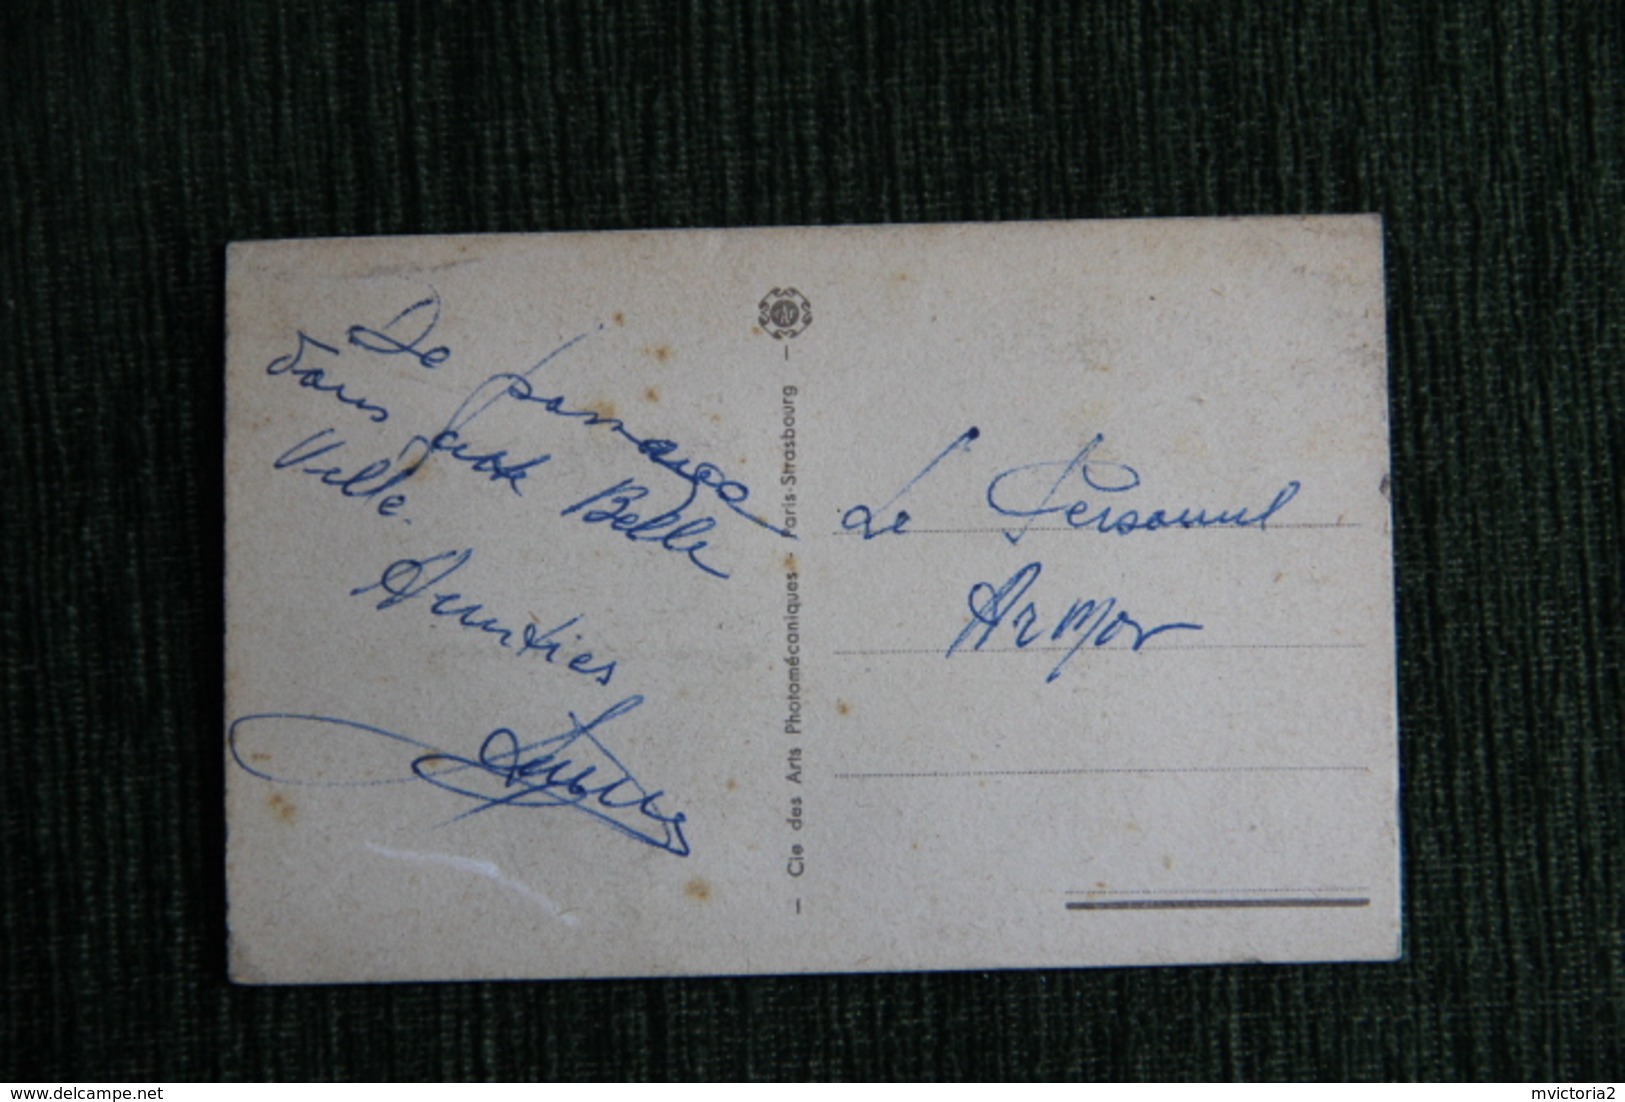 De passage
dans cette Belle
Ville.
Amitiés
- Cie des Arts Photomécaniques - Paris-Strasbourg -
Le Personnel
Armor
delcampe.net
mvictoria2